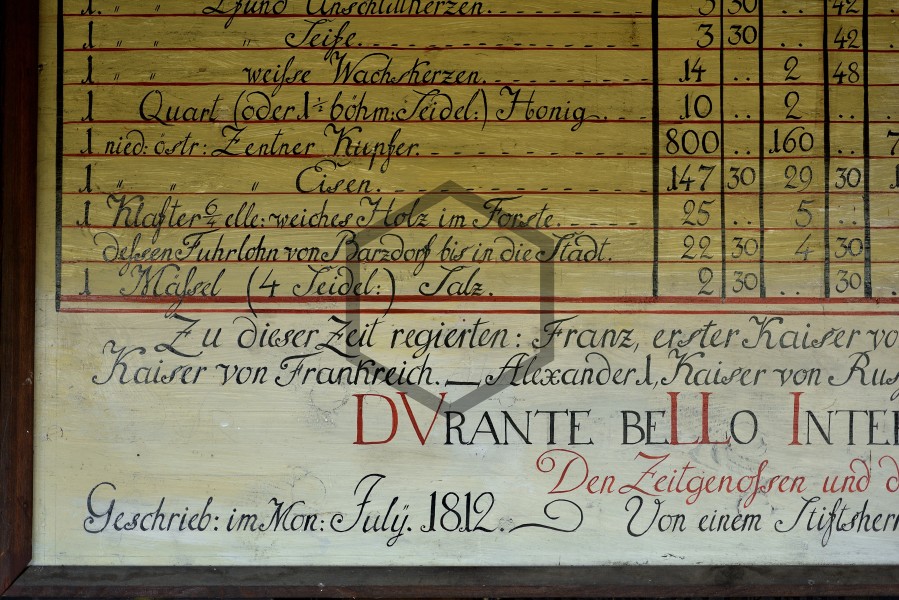 1. " " Pfund Unschlittkerzen. 3 30 .. 42
1 " " " Seife. 3 30 .. 42
1 " " weisse Wachskerzen. 14 .. 2 48
1 Quart (oder 1½ böhm: Seidel:) Honig. 10 .. 2 ..
1 nied: östr: Zentner Kupfer. 800 .. 160 .. 7
1 " " " Eisen. 147 30 29 30 1
1 Klafter 6/4 elle: weiches Holz im Forste. 25 .. 5 ..
dessen Fuhrlohn von Barzdorf bis in die Stadt. 22 30 4 30
1 Mässel (4 Seidel:) Salz. 2 30 .. 30
Zu dieser Zeit regierten: Franz, erster Kaiser vo
Kaiser von Frankreich. — Alexander 1, Kaiser von Rus
DVRANTE BELLO INTER
Den Zeitgenossen und d
Geschrieb: im Mon: Julÿ. 1812. Von einem Stiftsherr